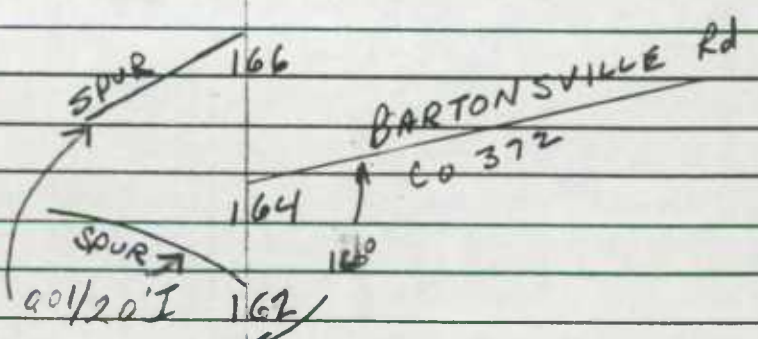 SPUR
166
BARTONSVILLE Rd
Co 372
164
SPUR
901/20'I
162